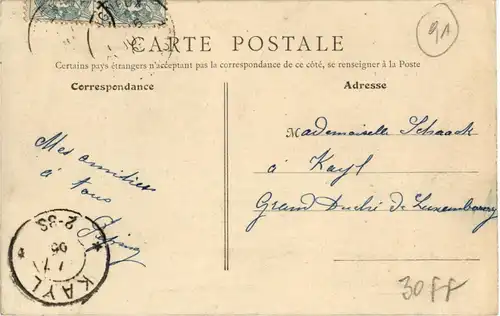 91
CARTE POSTALE
Certains pays étrangers n'acceptant pas la correspondance de ce côté, se renseigner à la Poste
Correspondance
Adresse
Mes amitiés
à tous
Mademoiselle Schaack
à Kayl
Grand Duché de Luxembourg
KAYL
30 FF